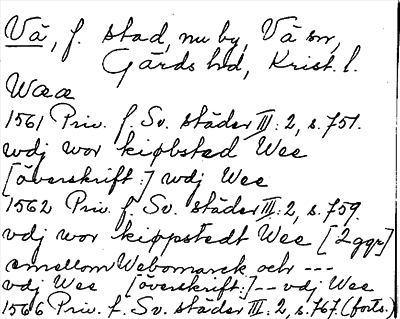 Vä, f. stad, nu by, Vä sn,
Gärds hd, Krist. l.
Wææ
1561 Priv. f. Sv. städer III: 2, s. 751.
wdj wor kiøbsted Wee
[överskrift:] wdj Wee
1562 Priv. f. Sv. städer III: 2, s. 759.
vdj wor kippstedt Wee [2 ggr]
emellom Webomarck och ---
vdj Wee [överskrift:] -- vdj Wee
1566 Priv. f. Sv. städer III: 2, s. 767. (forts.)